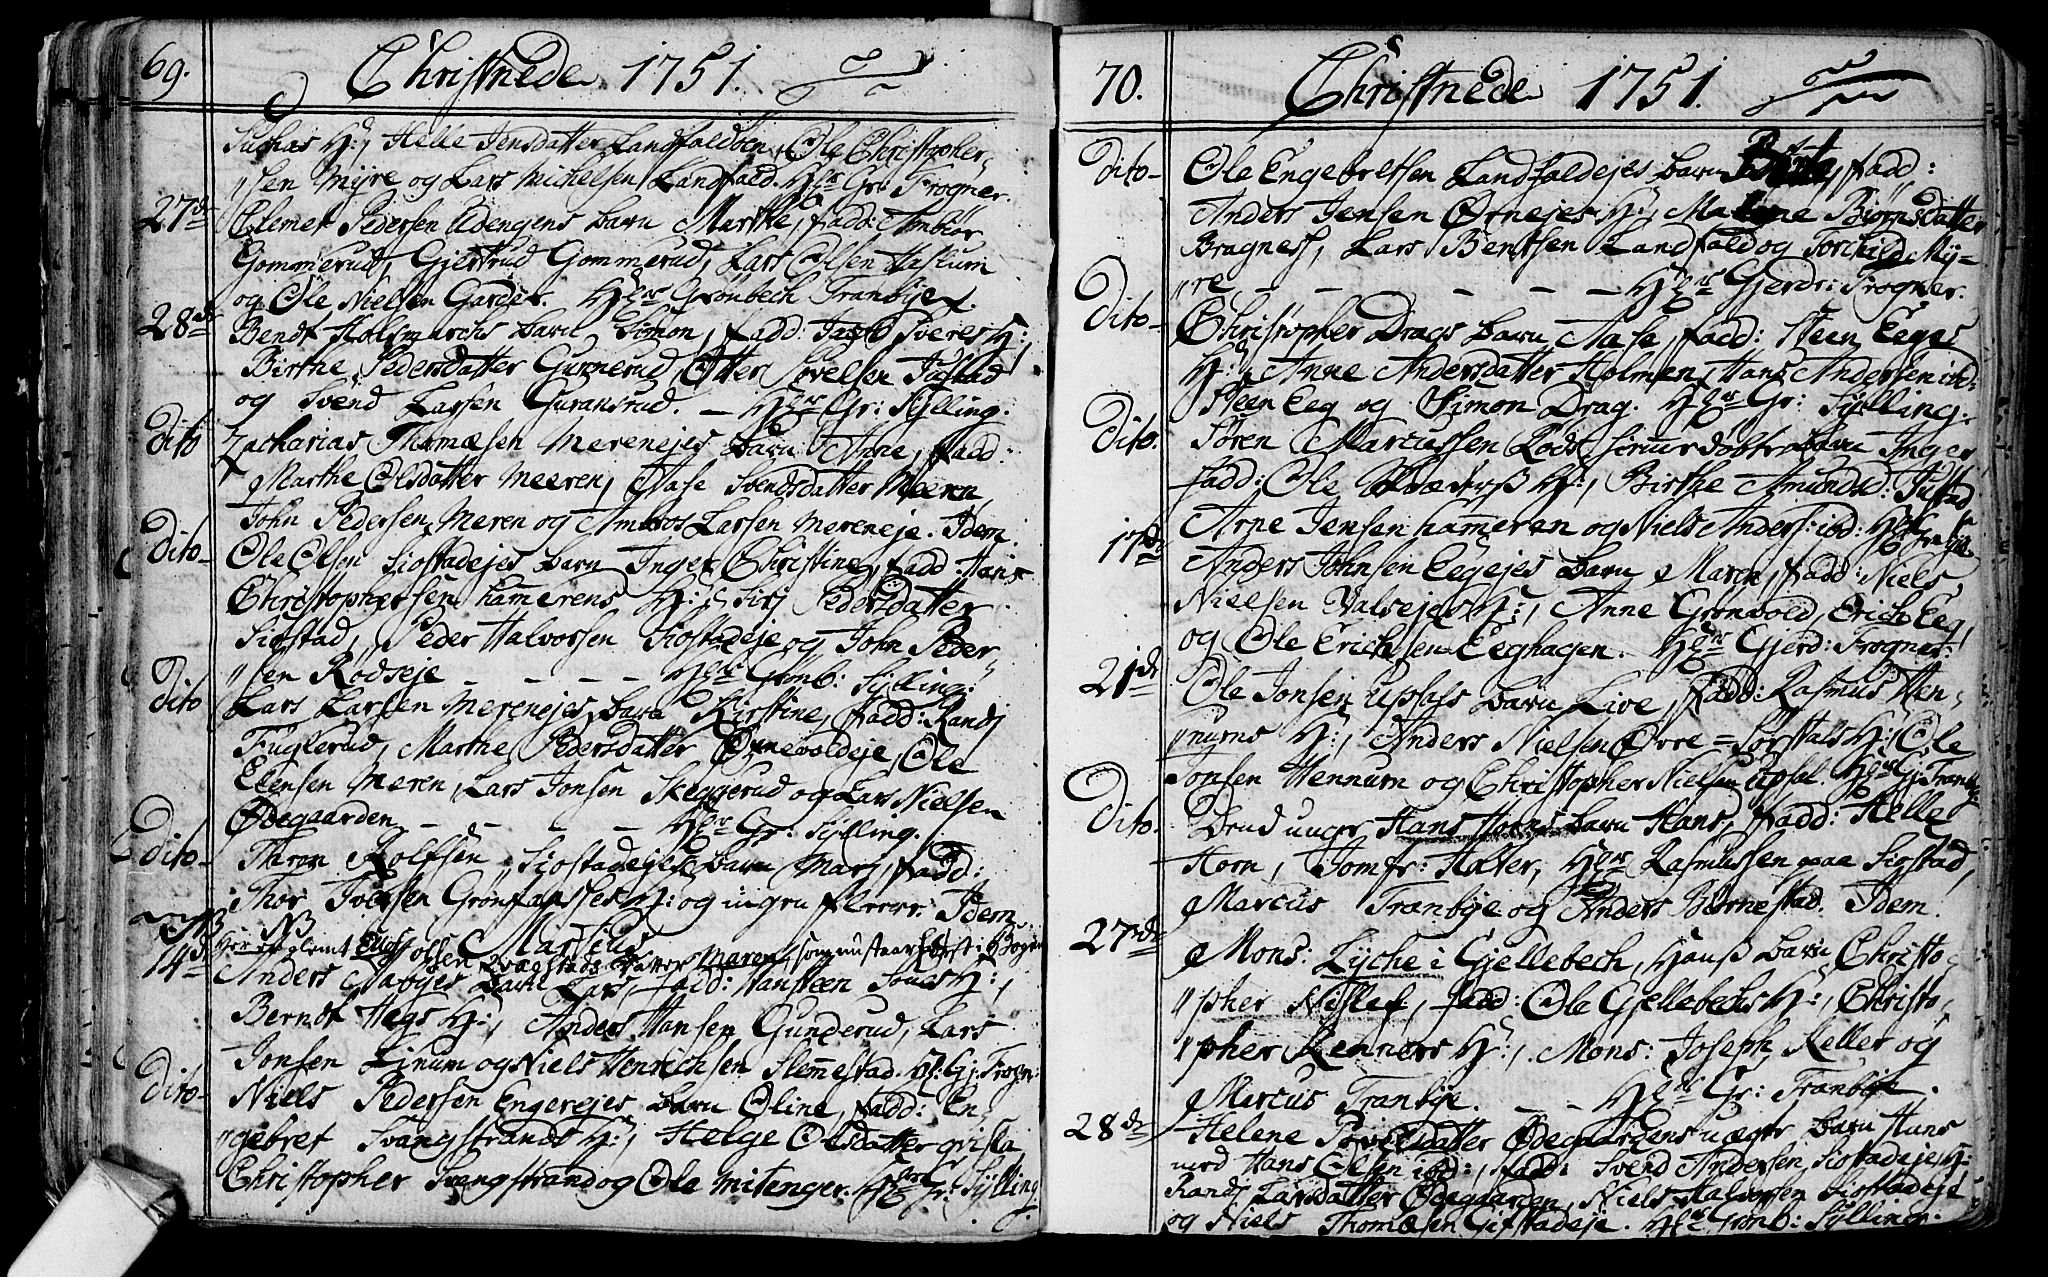 69. Christnede 1751.
Suchas H:, Helle Jensdatter Landfaldöen, Ole Christopher-
"sen Myre og Lars Michelsen Landfald. Hr Gr: Frogner.
27de Clemet Pedersen Adengens barn Marthe, fadd: Anbiör
Gommerud, Gjertrud Gommerud, Lars Olsen Haslum
og Ole Nielsen Garder. Hr Grönbech Tranbye.
28de Bendt Holsmarchs barn Simon, fadd: Sveres H:,
Birthe Pedersdatter Gunnerud, Otter Povelsen Justad
og Svend Larsen Guransrud. — Hr Gr: Sylling.
Dito Zacharias Thomæsen Merenejes barn Anne, fadd:
Marthe Olsdatter Meeren, Aase Svendsdatter Meeren
John Pedersen Meren og Ambros Larsen Mereneje. Idem.
Dito- Ole Olsen Siostadejes barn Inger Christine, fadd: Hans
Christophersen Hamerens H:, Sirj Pedersdatter
Siostad, Peder Halvorsen Siostadeje og John Peder-
"sen Rödseje — — — — Hr Grönb: Sylling:
Dito Lars Larsen Merenejes barn Kirstine, fadd: Randj
Fuglerud, Marthe Pedersdatter Ørnevoldeje, Ole
Evensen Meren, Lars Jonsen Skeggerud og Lars Nielsen
Ødegaarden — — — — Hr Gr: Sylling.
Dito- Taron Rolfsen Siostadejes barn Marj, fadd:
Thor Iversen Grönsands H: og ingen fleere. Idem.
NB NB Martius
Her er glemt Engebret Olsen Svangstrands datter Maren, som nu staar först i Bogen
14de Anders barn Lars, fadd: Hansteen Sones H:,
Berndt Hegs H:, Anders Hansen Gunderud, Lars
Jonsen Linum og Niels Henrichsen Slemmestad. Hr: Gj: Frogn:
Dito- Niels Pedersen Engerejes barn Oline, fadd: En-
"gebret Svangstrands H:, Helge Olsdatter qvista
Christopher Svangstrand og Ole Mitenger. Hr Gr: Sylling
70. Christnede 1751.
Dito- Ole Engebretsen Landfaldejes barn Birte, fadd:
Anders Jensen Ørnejes H:, Malene Biörnsdatter
Bragness, Lars Bentsen Landfald og Torchild My-
"re, — — — — — Hr Gjerdr: Frogner.
Dito- Christopher Drags barn Aase, fadd: Steen Eeges
H:, Anne Andersdatter Holmen, Hans Andersen ibd:
Steen Eeg og Simon Drag. Hr Gr: Sylling.
Dito. Sören Marcussen barn Inger
fadd: Ole H:, Birthe Amundsd: Justad
Arne Jensen Hameren og Niels Anders: ibd: Hr
17de Anders Johnsen Eegejes barn Maren, fadd: Niels
Nielsen Valsejes H:, Anne Grönvold, Erich Eeg
og Ole Erichsen Eeghagen. Hr Gjerd: Frogner:
21de Ole Jonsen Upsals barn Live, fadd: Rasmus Hen-
"nums H:, Anders Nielsen Øvre = Sörstals H:, Ole
Jonsen Hennum og Christopher Nielsen Upsal. Hr Gj: Tranbye
Dito. Drud unge Hans Horns barn Hans, fadd: Helle
Horn, Jomfr: Halter, Hr Rasmussen paa Siostad,
Marcus Tranbye og Anders Börnestad. Idem.
27de Mons: Lyche i Gjellebech, Hans barn Christo-
"pher Nislef, fadd: Ole Gjellebechs H:, Christo-
"pher Renners H:, Mons: Joseph Keller og
Marcus Tranbye. — — Hr Gr: Tranbye.
28de Helene Povelsdatter Ødegaardens uægte barn Hans
med Hans Olsen ibd:, fadd: Svend Andersen Siostadejes H:
Randj Larsdatter Ødegaarden, Niels Halvorsen Siostadeje
og Niels Thomæsen Gifstadeje. Hr Grönb: Sylling.